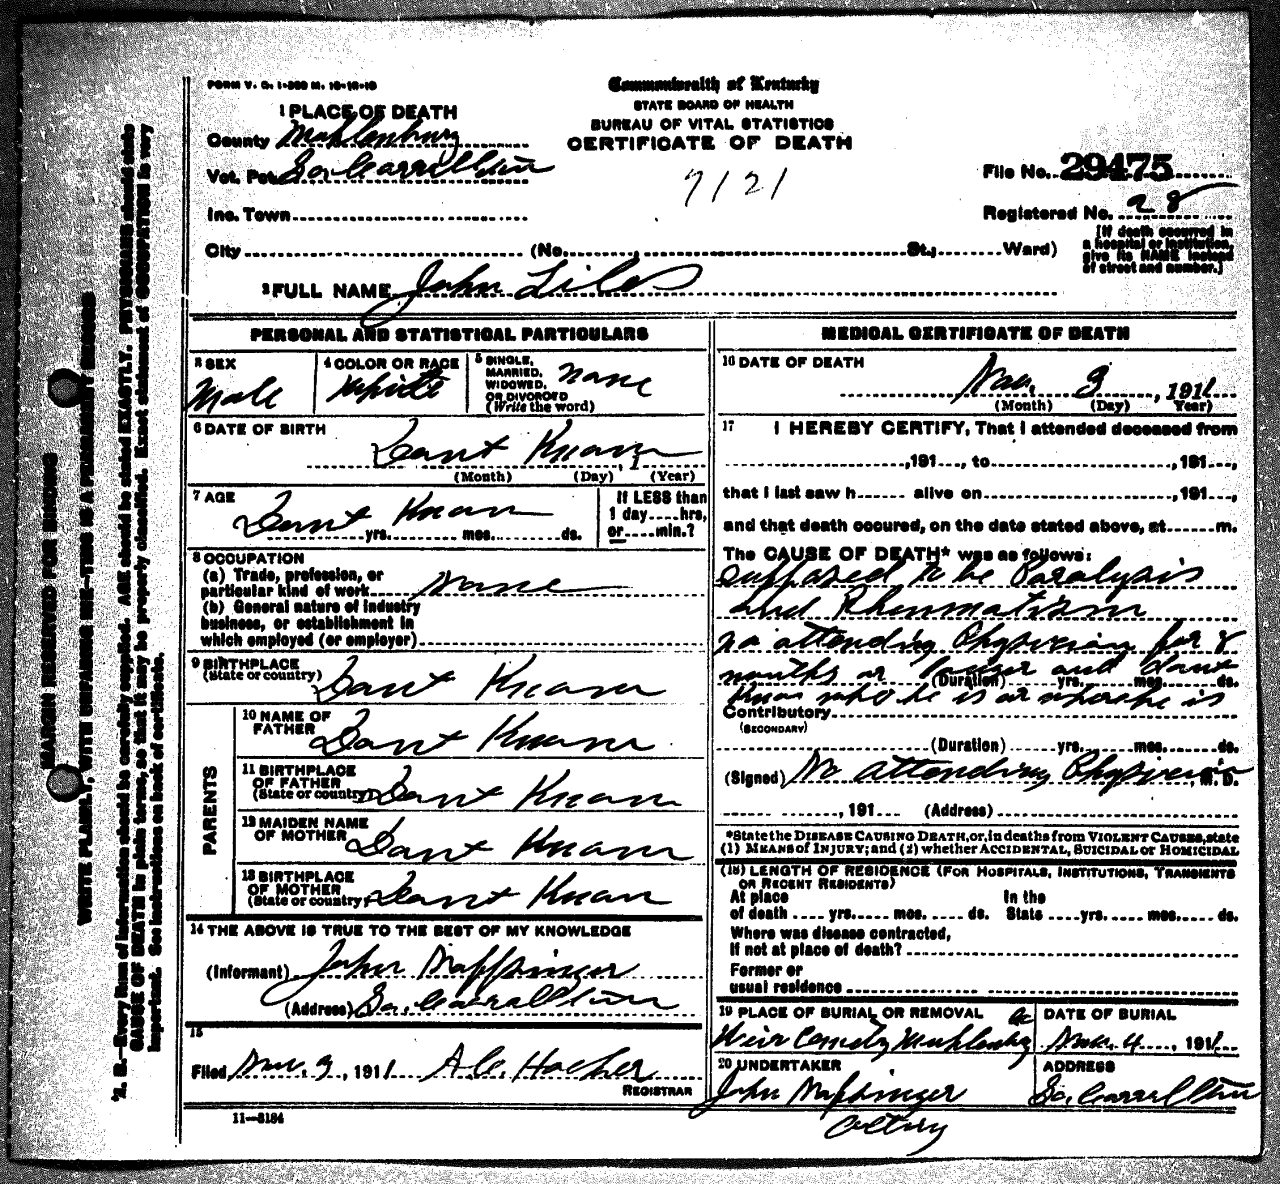 FORM V. S. 1-350 M. 10-16-10
Commonwealth of Kentucky
STATE BOARD OF HEALTH
BUREAU OF VITAL STATISTICS
CERTIFICATE OF DEATH
1 PLACE OF DEATH
County Muhlenburg
Vot. Pct. So. Carrollton
Inc. Town
City (No. St., Ward)
7121
File No. 29475
Registered No. 28
[If death occurred in
a hospital or institution,
give its NAME instead
of street and number.]
2 FULL NAME John Liles
PERSONAL AND STATISTICAL PARTICULARS
3 SEX
Male
4 COLOR OR RACE
White
5 SINGLE,
MARRIED,
WIDOWED,
OR DIVORCED
(Write the word)
none
6 DATE OF BIRTH
Dont Know
(Month) (Day) , 1 (Year)
7 AGE
Dont Know
yrs. mos. ds.
If LESS than
1 day hrs,
or min.?
8 OCCUPATION
(a) Trade, profession, or
particular kind of work none
(b) General nature of industry
business, or establishment in
which employed (or employer)
9 BIRTHPLACE
(State or country) Dont Know
PARENTS
10 NAME OF
FATHER Dont Know
11 BIRTHPLACE
OF FATHER
(State or country) Dont Know
12 MAIDEN NAME
OF MOTHER Dont Know
13 BIRTHPLACE
OF MOTHER
(State or country) Dont Know
14 THE ABOVE IS TRUE TO THE BEST OF MY KNOWLEDGE
(Informant) John
(Address) So. Carrollton
15
Filed Nov. 3, 1911
REGISTRAR
11—3184
MEDICAL CERTIFICATE OF DEATH
16 DATE OF DEATH
Nov. 3, 1911
(Month) (Day) Year)
17 I HEREBY CERTIFY, That I attended deceased from
,191 , to ,191 ,
that I last saw h alive on ,191 ,
and that death occured, on the date stated above, at m.
The CAUSE OF DEATH* was as follows:
supposed to be Paralysis
and Rheumatism
no attending Physician for 8
months or longer and dont
(Duration) yrs. mos. ds.
know who he is or where he is
Contributory
(SECONDARY)
(Duration) yrs. mos. ds.
(Signed) No attending Physician, M. D.
, 191 (Address)
*State the DISEASE CAUSING DEATH, or, in deaths from VIOLENT CAUSES, state
(1) MEANS of INJURY; and (2) whether ACCIDENTAL, SUICIDAL or HOMICIDAL
(18) LENGTH OF RESIDENCE (FOR HOSPITALS, INSTITUTIONS, TRANSIENTS
OR RECENT RESIDENTS)
At place In the
of death yrs. mos. ds. State yrs. mos. ds.
Where was disease contracted,
If not at place of death?
Former or
usual residence
19 PLACE OF BURIAL OR REMOVAL
Weir Cemetry Muhlenburg Co
DATE OF BURIAL
Nov. 4, 1911
20 UNDERTAKER
John
ADDRESS
So. Carrollton
MARGIN RESERVED FOR BINDING
WRITE PLAINLY, WITH UNFADING INK—THIS IS A PERMANENT RECORD
N. B.—Every item of information should be carefully supplied. AGE should be stated EXACTLY. PHYSICIANS should state
CAUSE OF DEATH in plain terms, so that it may be properly classified. Exact statement of OCCUPATION is very
important. See instructions on back of certificate.